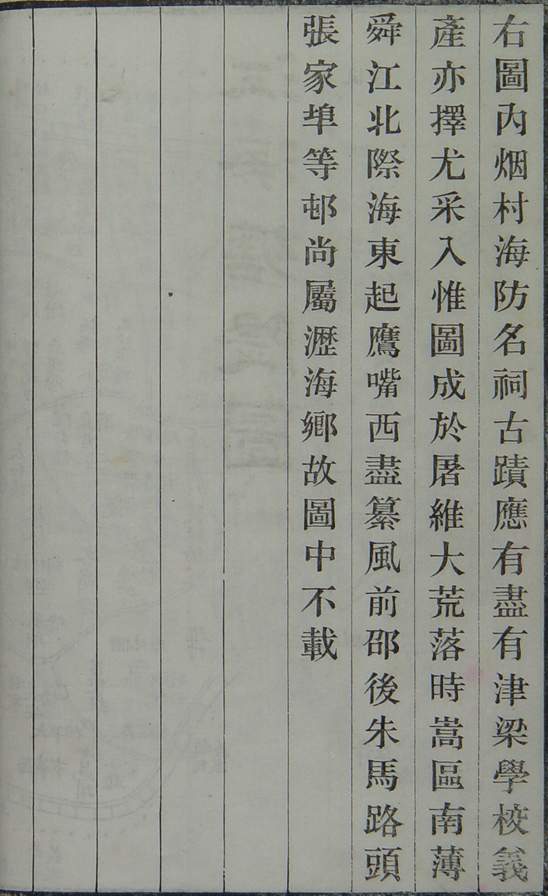 右圖內烟村海防名祠古蹟應有盡有津梁學校義
產亦擇尤采入惟圖成於屠維大荒落時嵩區南薄
舜江北際海東起鷹嘴西盡纂風前邵後朱馬路頭
張家埠等邨尚屬瀝海鄉故圖中不載